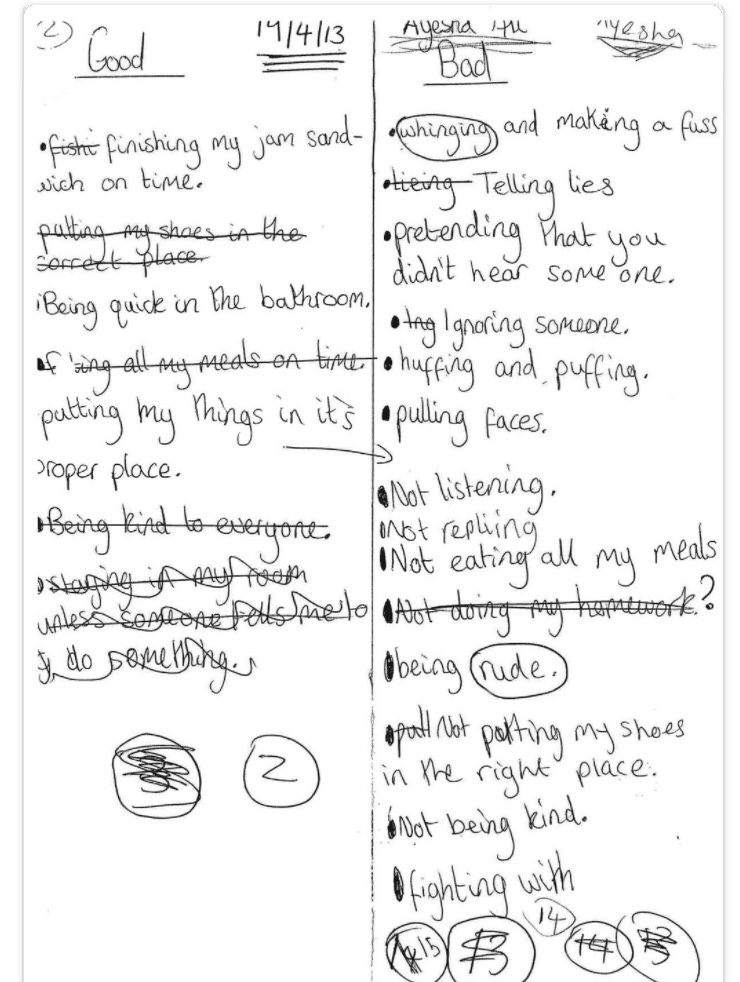 2) Good
19/4/13
Ayesha Ali
Ayesha
Bad
• fishi finishing my jam sand-
wich on time.
putting my shoes in the
correct place.
Being quick in the bathroom.
all my meals on time.
putting my things in it's
proper place.
• Being kind to everyone.
staying in my room
unless someone tells me to
do something.
2
• whinging and making a fuss
• lieing Telling lies
• pretending that you
didn't hear someone.
• Ing Ignoring someone.
• huffing and puffing.
• pulling faces.
• Not listening.
Not repliing
• Not eating all my meals
• Not doing my homework.?
• being rude.
• putt Not putting my shoes
in the right place.
• Not being kind.
• fighting with
14
15
13
14